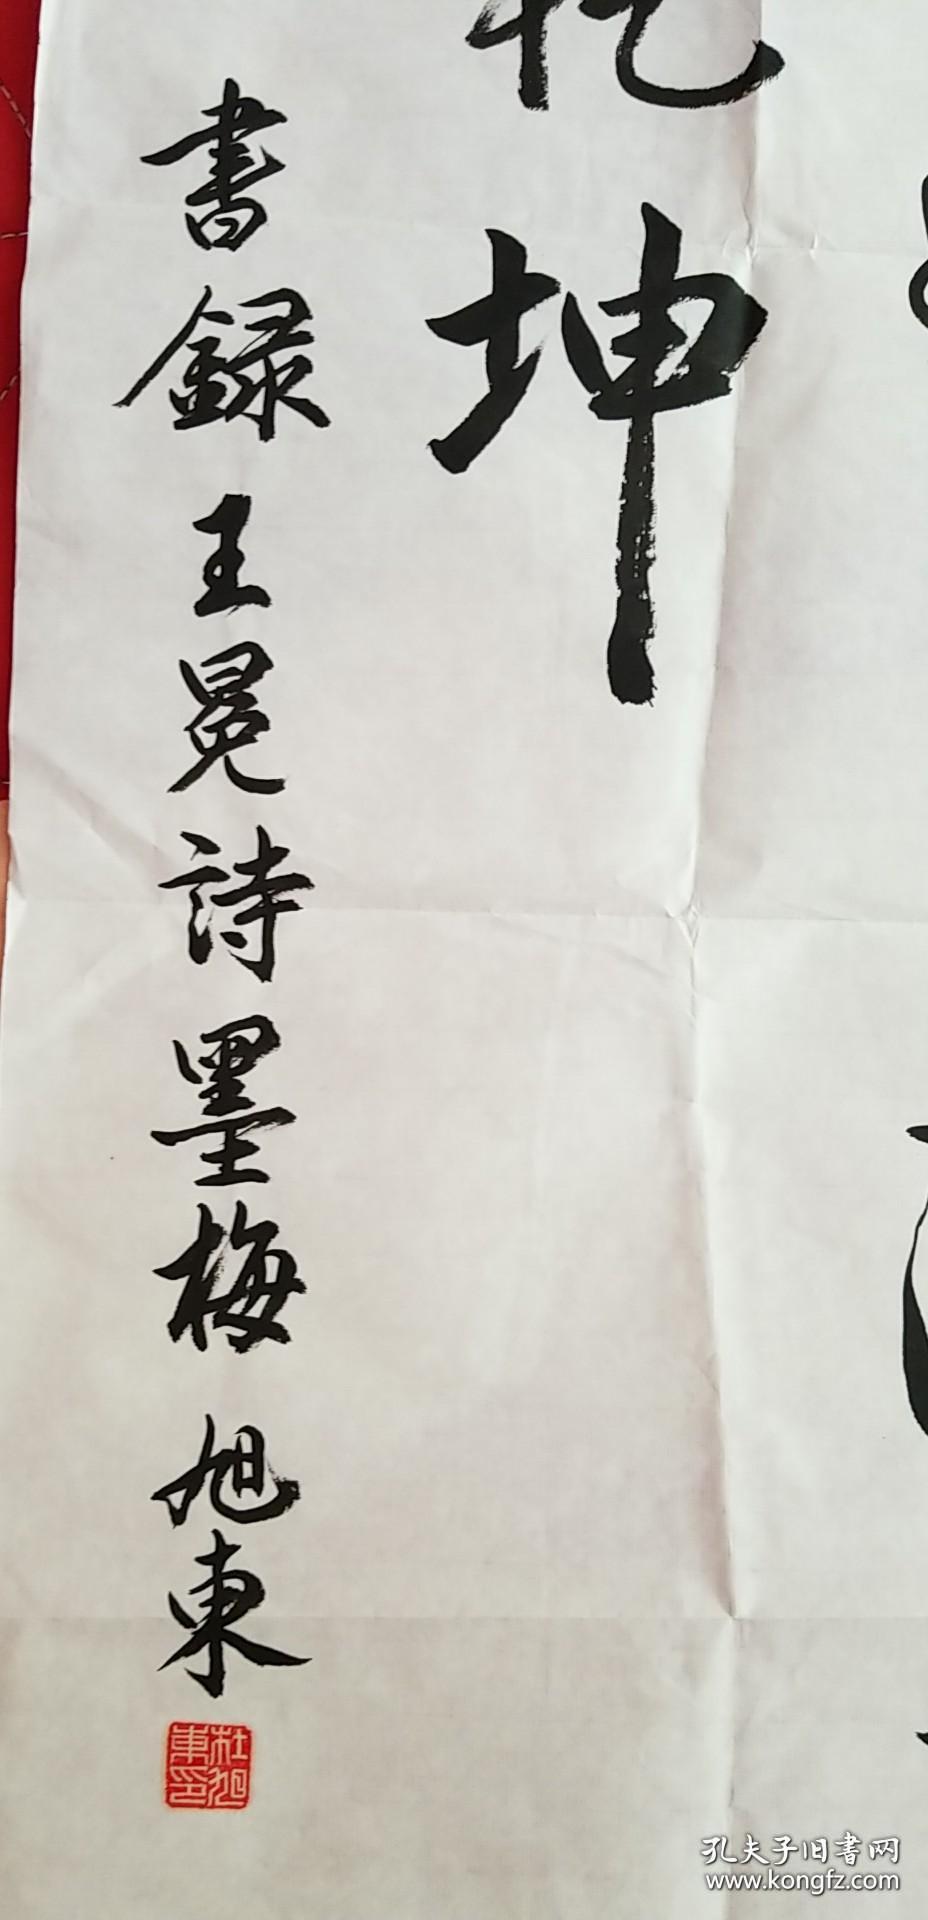 乾坤
書録王冕詩墨梅 旭東
杜旭東印
孔夫子旧书网
www.kongfz.com